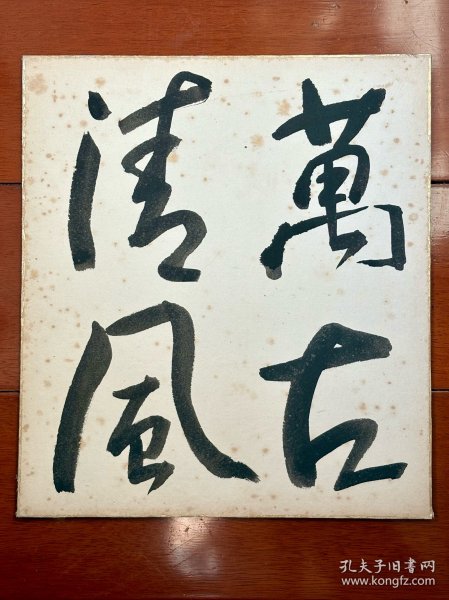 萬古
清風
孔夫子旧书网
www.kongfz.com